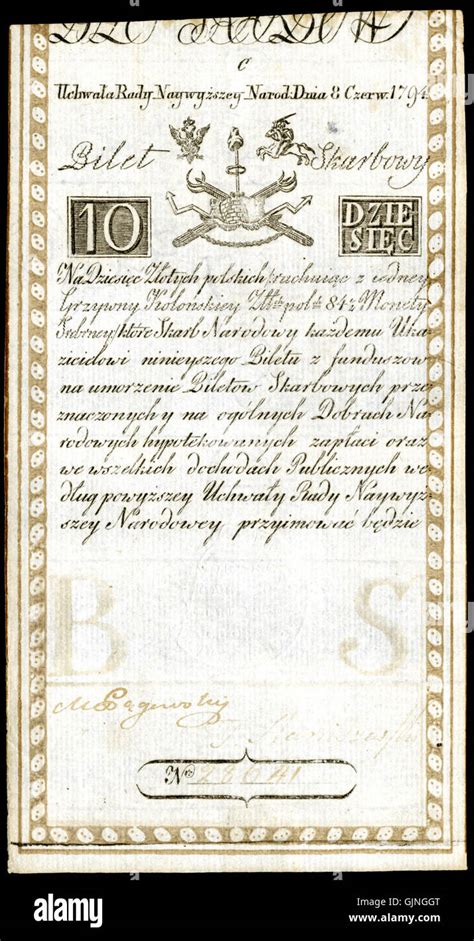 C
Uchwała Rady Naywyższey Narod: Dnia 8 Czerw. 1794
Bilet Skarbowy
10 DZIE
SIĘĆ
Na Dziesięć Złotych polskich rachuiąc z iedney
Grzywny Kolońskiey Złtch pol: 84½ Monety
Srebrney które Skarb Narodowy każdemu Uka
zicielowi ninieyszego Biletu z funduszow
na umorzenie Biletow Skarbowych prze
znaczonych y na ogólnych Dobrach Na
rodowych hypotekowanych zapłaci oraz
we wszelkich dochodach Publicznych we
dług powyższey Uchwały Rady Naywyż
szey Narodowey przyimować będzie
B S
No 28641
alamy
Image ID: GJNGGT
www.alamy.com